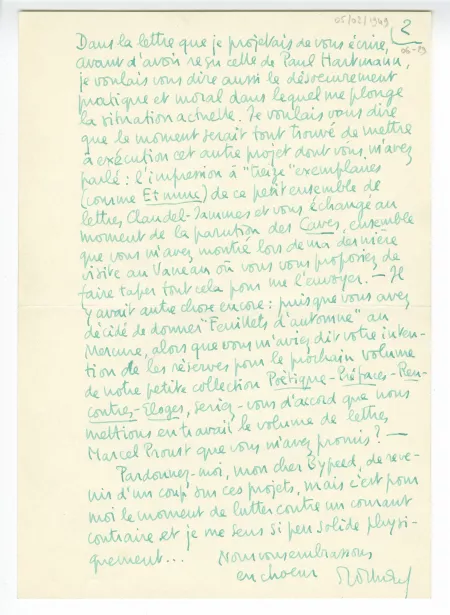 05/02/1949
2
06-89
Dans la lettre que je projetais de vous écrire,
avant d'avoir reçu celle de Paul Hartmann,
je voulais vous dire aussi le désoeuvrement
pratique et moral dans lequel me plonge
la situation actuelle. Je voulais vous dire
que le moment serait tout trouvé de mettre
à exécution cet autre projet dont vous m'avez
parlé : l'impression à "treize" exemplaires
(comme Et nunc) de ce petit ensemble de
lettres Claudel-Jammes et vous échangé au
moment de la parution des Caves, ensemble
que vous m'avez montré lors de ma dernière
visite au Vaneau où vous vous proposiez de
faire taper tout cela pour me l'envoyer. — Il
y avait autre chose encore : puisque vous avez
décidé de donner "Feuillets d'automne" au
Mercure, alors que vous m'aviez dit votre inten-
tion de les réserver pour le prochain volume
de notre petite collection Poétique-Préfaces-Ren-
contres-Eloges, seriez-vous d'accord que nous
mettions en travail le volume de lettres
Marcel Proust que vous m'avez promis ? —
Pardonnez-moi, mon cher Bypeed, de reve-
nir d'un coup sur ces projets, mais c'est pour
moi le moment de lutter contre un courant
contraire et je me sens si peu solide physi-
quement...
Nous vous embrassons
en choeur